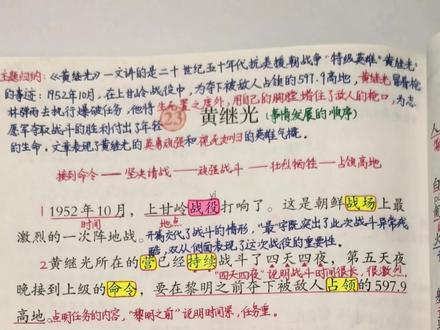 主题归纳:《黄继光》一文讲的是二十世纪五十年代,抗美援朝战争"特级英雄"黄继光
的事迹:1952年10月,在上甘岭战役中,为夺下被敌人占领的597.9高地,黄继光冒着枪
林弹雨去执行爆破任务,他将生死置之度外,用自己的胸膛堵住了敌人的枪口,为志
愿军夺取战斗的胜利付出了年轻
的生命,文章表现了黄继光的英勇顽强和视死如归的英雄气概。
23 黄继光 (事情发展的顺序)
接到命令——坚决请战——顽强战斗——壮烈牺牲——占领高地
1 1952年10月,上甘岭战役打响了。这是朝鲜战场上最
时间 地点
激烈的一次阵地战。开篇交代了战斗的情形,"最"字既突出了此次战斗异常残
酷,又从侧面表现了这次战役的重要性。
2 黄继光所在的营已经持续战斗了四天四夜,第五天夜
"四天四夜"说明战斗时间很长,很激烈
晚接到上级的命令,要在黎明之前夺下被敌人占领的597.9
高地。点明任务的内容,"黎明之前"说明时间紧,任务重。